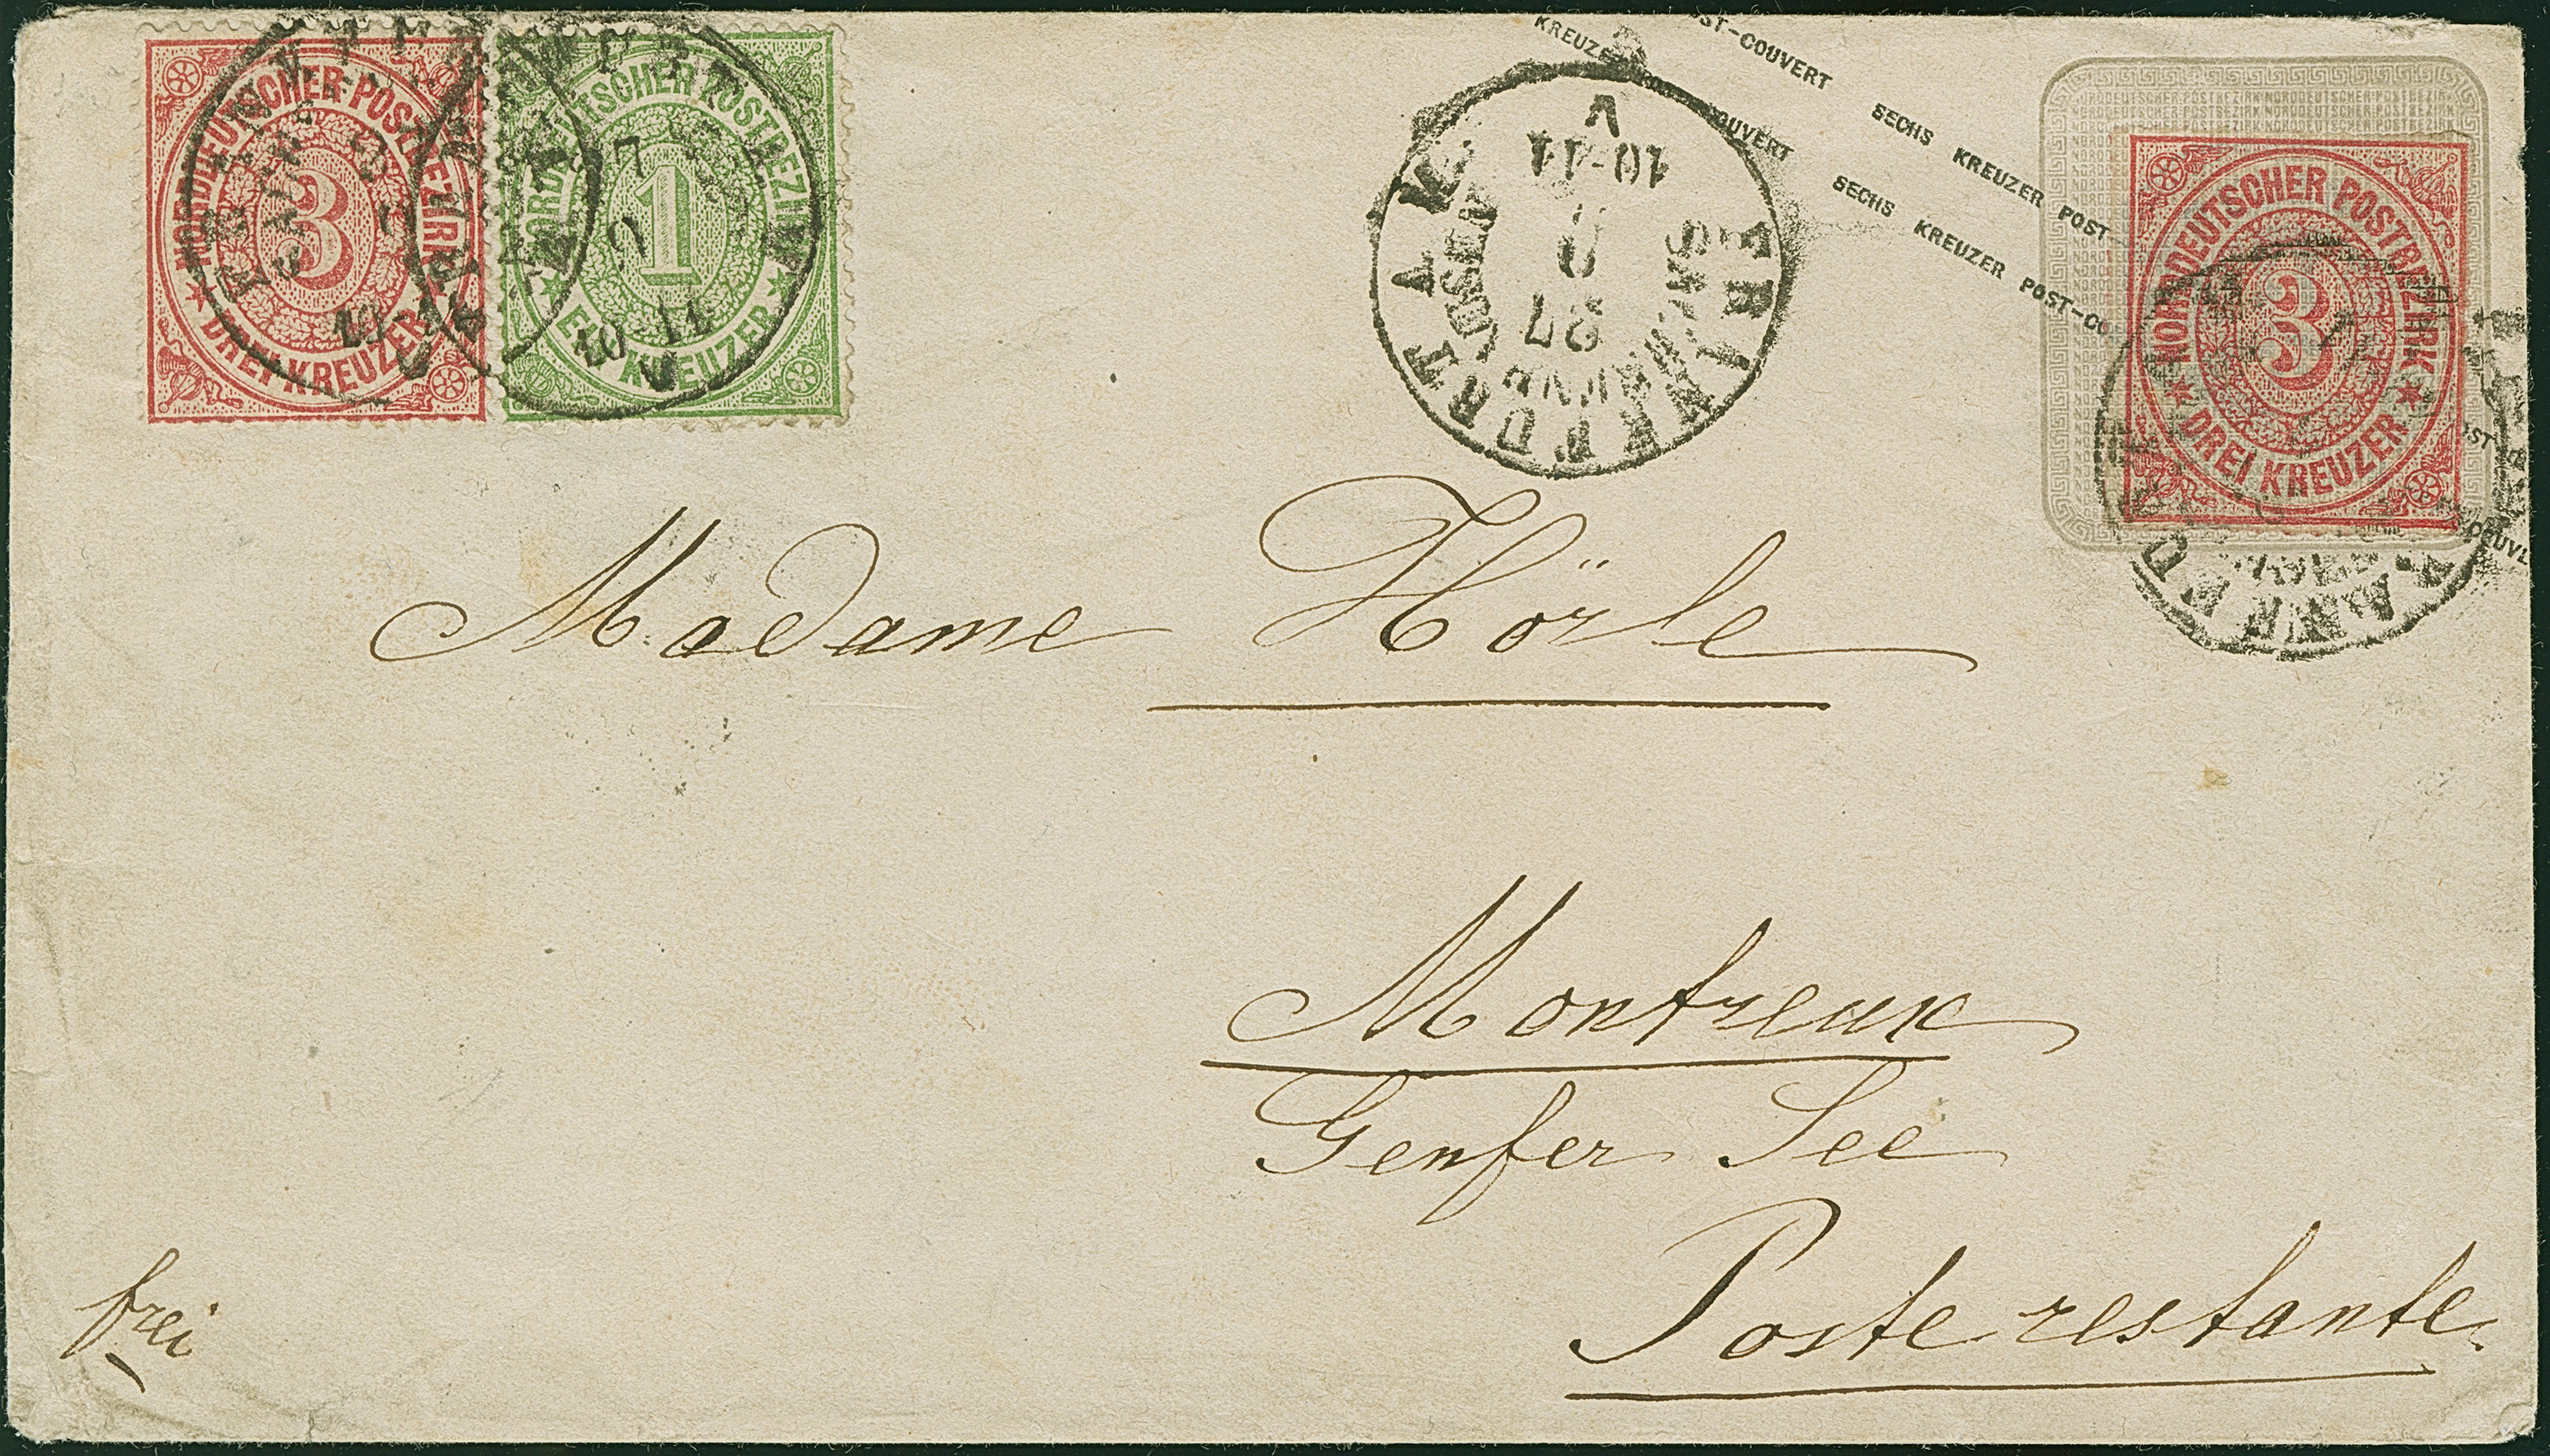 NORDDEUTSCHER POSTBEZIRK
3
DREI KREUZER
10-11
NORDDEUTSCHER POSTBEZIRK
1
EIN KREUZER
10-11
V
KREUZER POST-COUVERT SECHS KREUZER POST-
POST-COUVERT SECHS KREUZER POST-COUVERT
FRANKFURT A. M.
SACHSENHAUSEN
27
9
10-11
V
NORDDEUTSCHER POSTBEZIRK
3
DREI KREUZER
Madame Hörle
Montreux
Genfer See
Poste restante.
frei